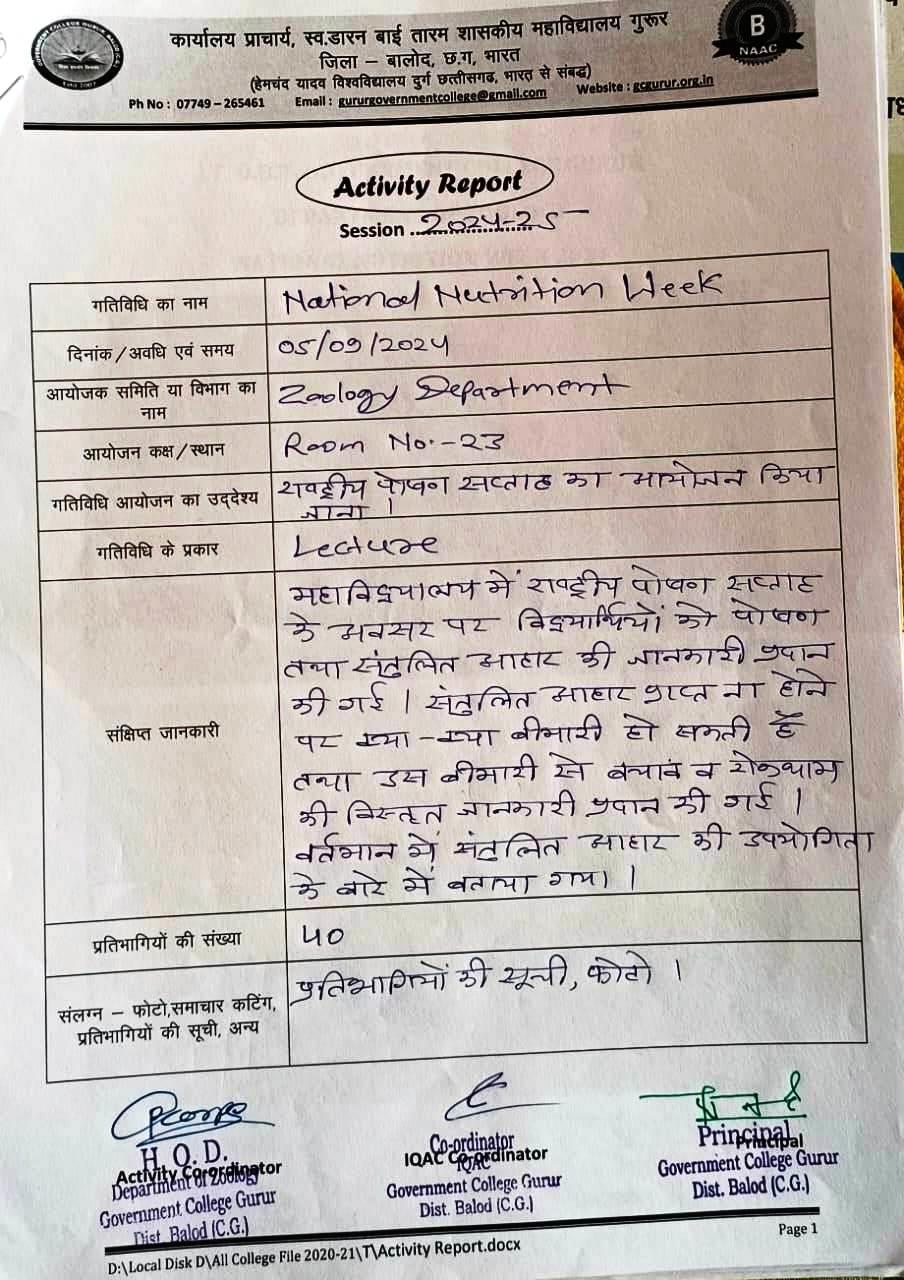 कार्यालय प्राचार्य, स्व.डारन बाई तारम शासकीय महाविद्यालय गुरूर
जिला – बालोद, छ.ग, भारत
(हेमचंद यादव विश्वविद्यालय दुर्ग छत्तीसगढ, भारत से संबद्ध)
Ph No : 07749 – 265461 Email : gururgovernmentcollege@gmail.com Website : gcgurur.org.in
B
NAAC
Activity Report
Session 2024-25
गतिविधि का नाम National Nutrition Week
दिनांक/अवधि एवं समय 05/09/2024
आयोजक समिति या विभाग का Zoology Department
नाम
आयोजन कक्ष/स्थान Room No.-23
गतिविधि आयोजन का उददेश्य राष्ट्रीय पोषण सप्ताह का आयोजन किया
जाना ।
गतिविधि के प्रकार Lecture
महाविद्यालय में राष्ट्रीय पोषण सप्ताह
के अवसर पर विद्यार्थियों को पोषण
तथा संतुलित आहार की जानकारी प्रदान
की गई । संतुलित आहार प्राप्त ना होने
संक्षिप्त जानकारी
पर क्या-क्या बीमारी हो सकती हैं
तथा उस बीमारी से बचाव व रोकथाम
की विस्तृत जानकारी प्रदान की गई ।
वर्तमान में संतुलित आहार की उपयोगिता
के बारे में बताया गया ।
प्रतिभागियों की संख्या 40
संलग्न – फोटो,समाचार कटिंग, प्रतिभागियों की सूची, फोटो ।
प्रतिभागियों की सूची, अन्य
H.O.D.
Activity Co-ordinator
Department of Zoology
Government College Gurur
Dist. Balod (C.G.)
Co-ordinator
IQAC Co-ordinator
IQAC
Government College Gurur
Dist. Balod (C.G.)
Principal
Principal
Government College Gurur
Dist. Balod (C.G.)
D:\Local Disk D\All College File 2020-21\T\Activity Report.docx Page 1